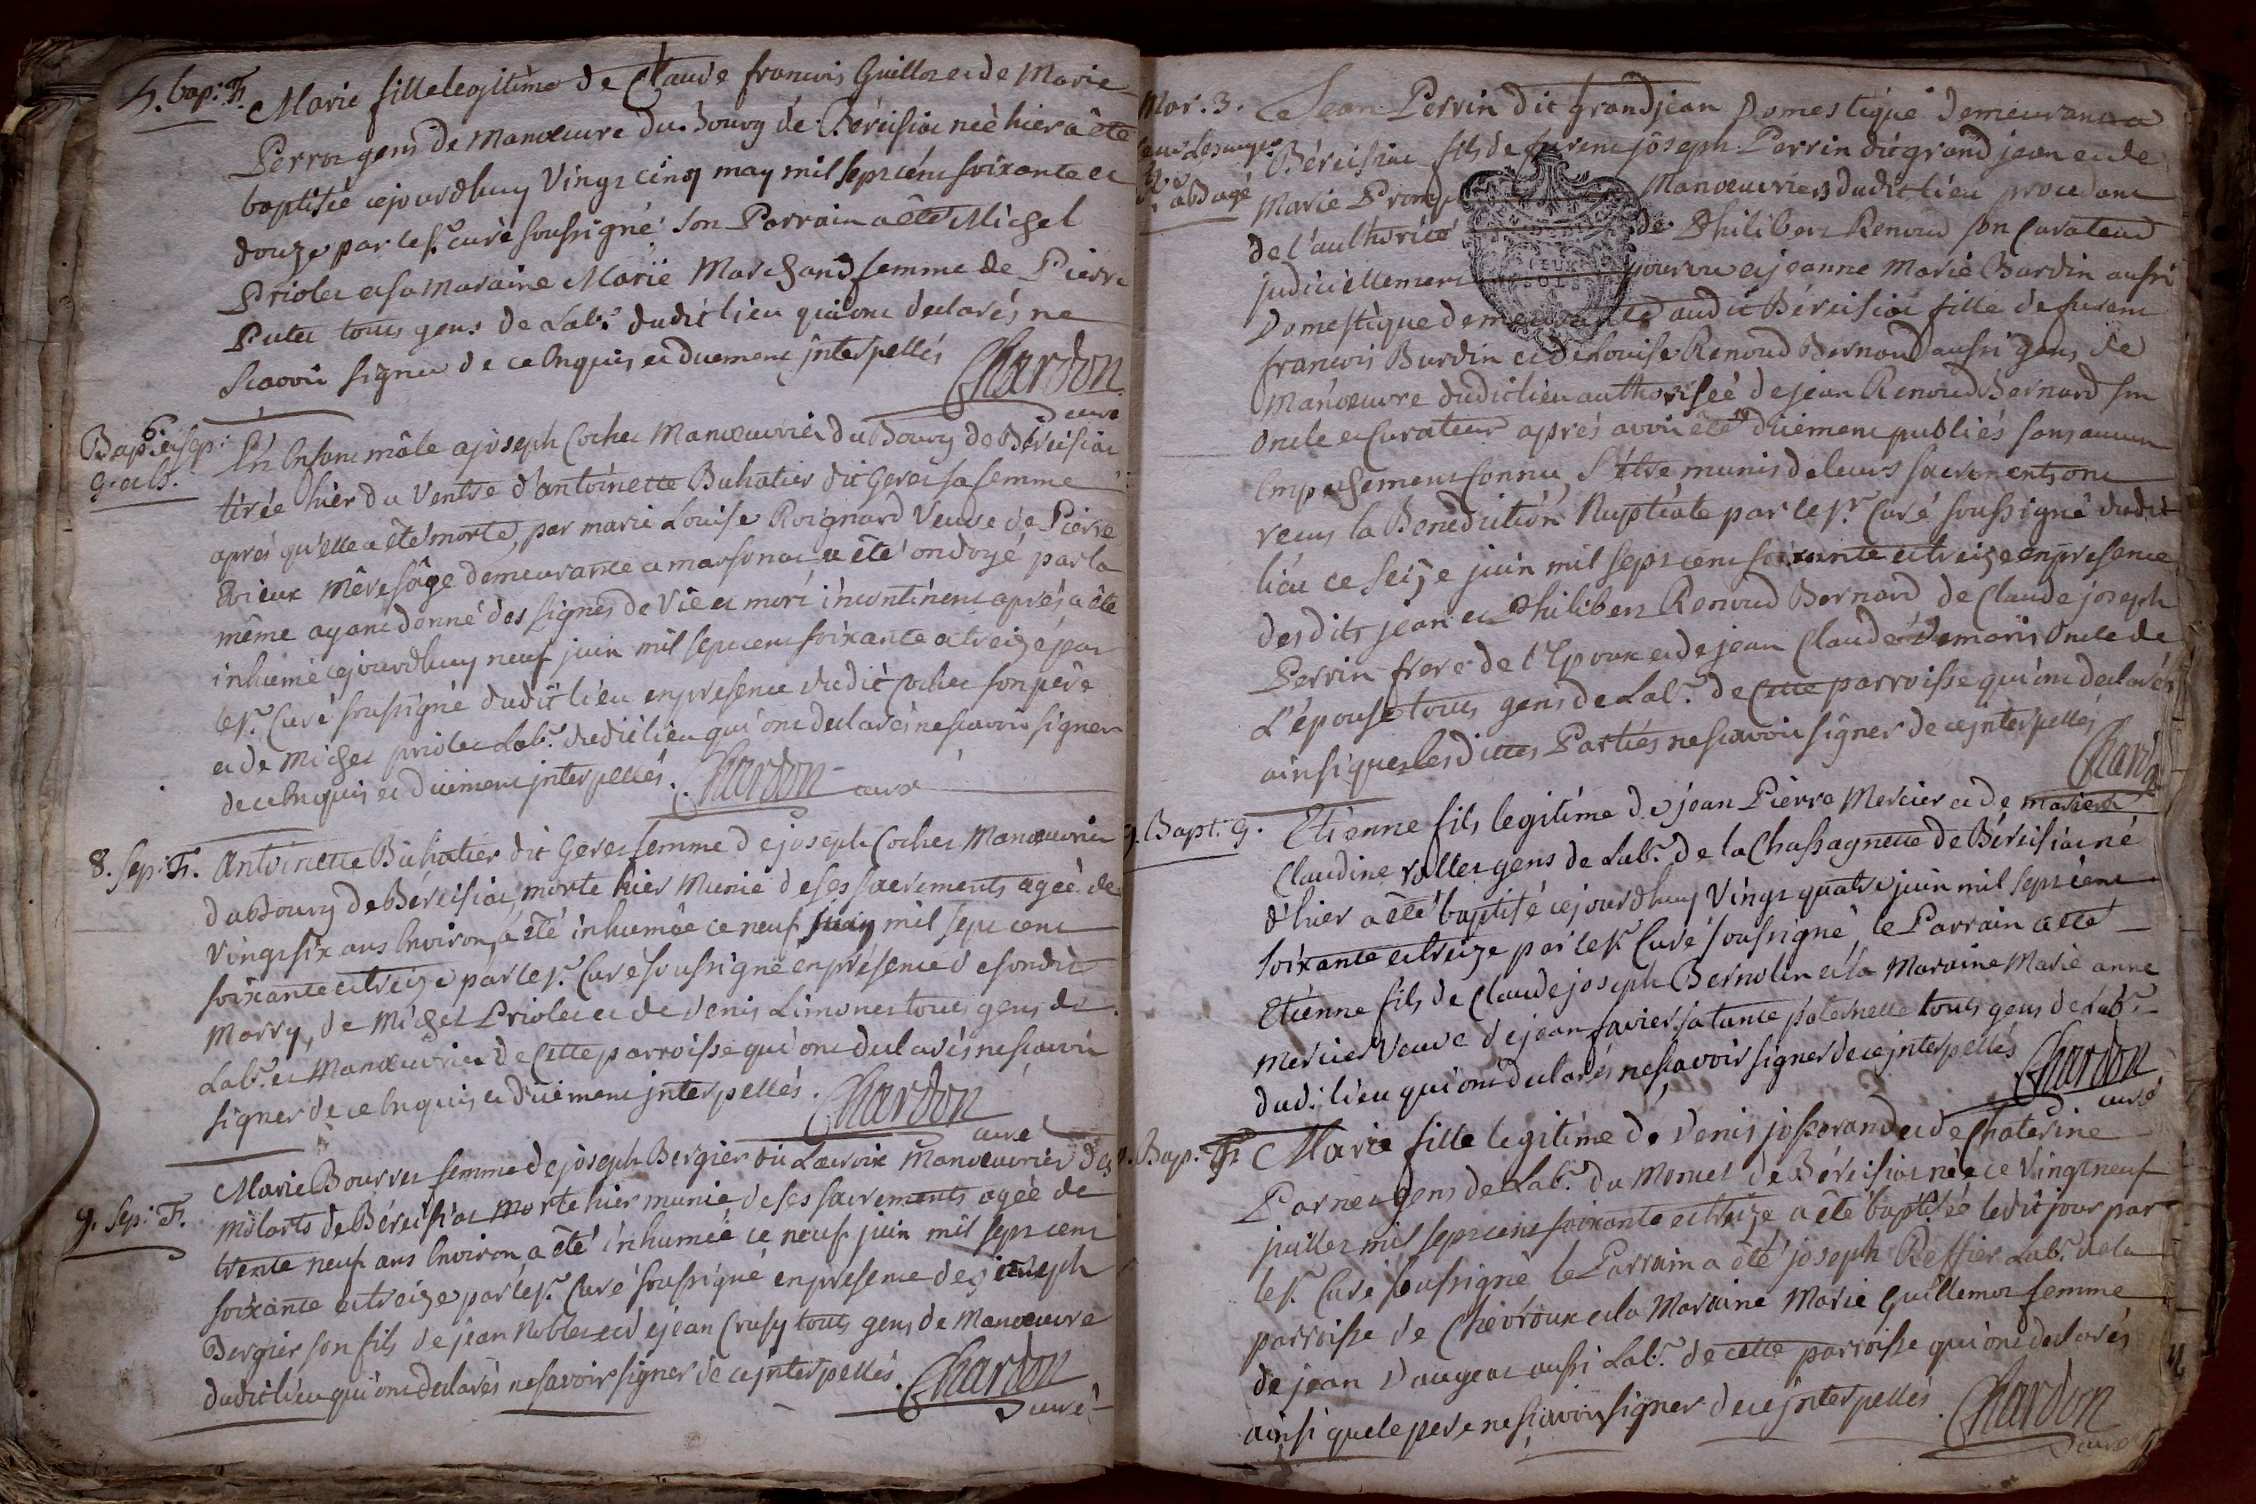 5. bap: F.
Marie fille legitime de Claude francois Guillot et de Marie
Perrot gens de manœuvre du Bourg de Béréisiat née hier a êté
baptisée cejourdhuy vingt cinq may mil sept cent soixante et
douze par le sr. curé soussigné son Parrain a êté Michel
Priolet et sa maraine Marie Marchand femme de Pierre
Putet touts gens de Labr. dudit lieu qui ont declarés ne
scavoir signer de ce Enquis et duement jnterpellés Chardon
curé
6.
Bap: et sep:
g. et 15.
Un Enfant mâle a joseph Cochet Manœuvrier du Bourg de Béréisiat
tirée hier du Ventre d'antoinette Buhatier dit Geret sa femme
apres qu'elle a êté morte, par marie Louise Roignard Veuve de Pierre
Evieux mère sâge demeurante a marsonat a êté ondoyé par la
même ayant donné des signes de Vie et mort incontinent aprés a êté
inhumé cejourdhuy neuf juin mil sept cent soixante et treize par
le sr. Curé soussigné dudit lieu en presence dudit Cochet son pere
et de Michel priolet Labr. dudit lieu qui ont declarés ne scavoir signer
de ce Enquis et duement jnterpellés. Chardon curé
8. sep: F. Antoinette Buhatier dit Geret femme de joseph Cochet Manœuvrier
du Bourg de Béréisiat, morte hier Munie de ses sacrements agée de
Vingt six ans Environ, a êté inhumée ce neuf juin mil sept cent
soixante et treize par le sr. Curé soussigné en présence de sondit
Marry, de Michel Priolet et de Denis Limonet touts gens de
Labr. et Manœuvrier de Cette parroisse qui ont declarés ne scavoir
signer de ce Enquis et duement jnterpellés. Chardon
curé
9. Sep: F.
Marie Bourret femme de joseph Bergier dit Lacroix Manœuvrier des
Milarts de Béréisiat morte hier munie de ses sacrements agée de
trente neuf ans Environ a êté inhumée ce neuf juin mil sept cent
soixante et treize par le sr. Curé soussigné en presence de joseph
Bergier son fils de jean Noblet et de jean Crusy touts gens de Manœuvre
dudit lieu qui ont declarés ne scavoir signer de ce jnterpellés. Chardon
curé
Mar. 3.
Jean Perrin dit grandjean Domestique demeurant a
Béréisiat fils de furent joseph Perrin dit grand jean et de
Marie Manœuvriers dudit lieu procedant
de l'authorité de Philibert Renoud son Curateur
judiciellement pourvu et jeanne Marie Burdin aussi
Domestique demeurante audit Béréisiat fille de furent
francois Burdin et de Louise Renoud Bernard aussi gens de
Manœuvre dudit lieu authorisée de jean Renoud Bernard son
Oncle et Curateur aprés avoir êté duement publiés sans aucun
Empechement connu, s'être munis de leurs sacrements ont
recus la Benediction Nuptiale par le sr. Curé soussigné dudit
lieu ce seize juin mil sept cent soixante et treize en presence
desdits jean et Philibert Renoud Bernard de Claude joseph
Perrin frere de l'Epoux et de jean Claude Demaris Oncle de
L'épouse touts gens de Labr. de Cette parroisse qui ont declarés
ainsi que lesdittes Parties ne scavoir signer de ce jnterpellés
Chardo
9. Bapt. G.
Etienne fils legitime de jean Pierre Mercier et de marie
Claudine rollet gens de Labr. de la Chassagnette de Béréisiat né
d'hier a êté baptisé cejourdhuy vingt quatre juin mil sept cent
soixante et treize par le sr. Curé soussigné, le Parrain a eté
Etienne fils de Claude joseph Bernolin et la Maraine Marie anne
Mercier Veuve de jean favier sa tante paternelle touts gens de Labr.
dud. lieu qui ont declarés ne scavoir signer de ce jnterpellés Chardon
curé
Bap. F. Marie fille legitime de Denis josserand et de Chaterine
Parnet gens de Labr. du Monet de Béréisiat née ce Vingt neuf
juillet mil sept cent soixante et treize a êté baptisée ledit jour par
le sr. Curé soussigné le Parrain a êté joseph Reffier Labr. de la
parroisse de Chevroux et la Maraine Marie Guillemot femme
de jean Daugeat aussi Labr. de cette parroisse qui ont declarés
ainsi que le pere ne scavoir signer de ce jnterpellés. Chardon
curé